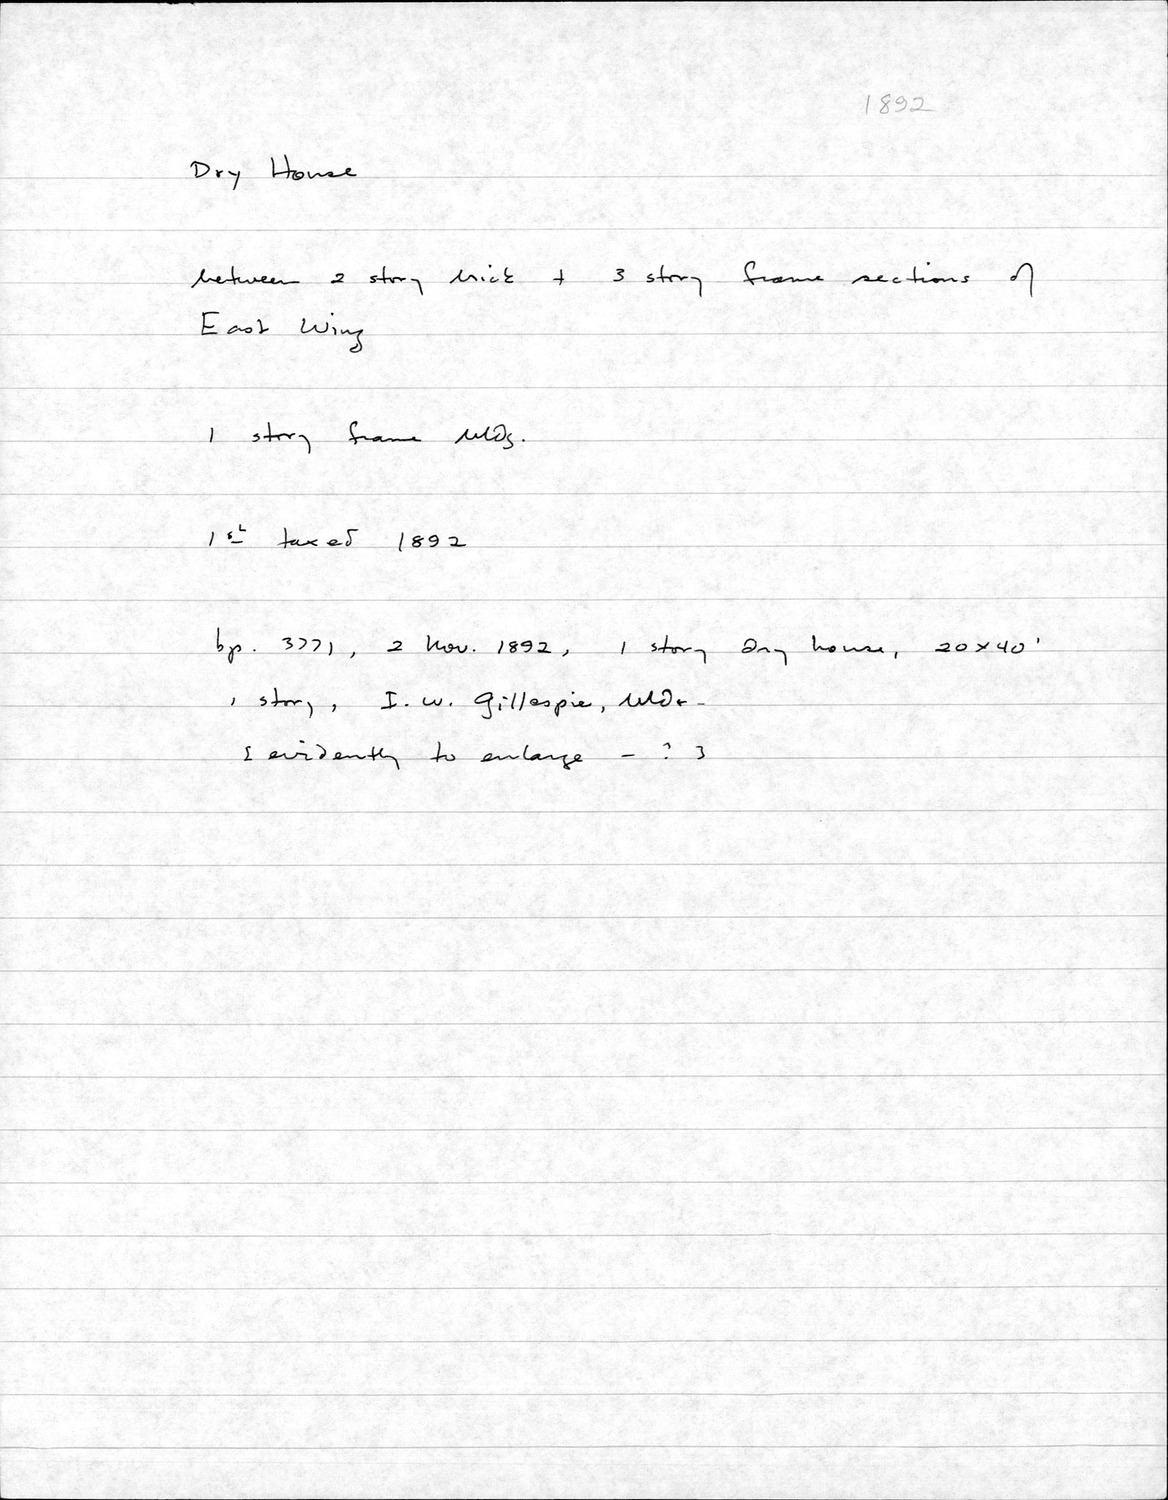 1892
Dry House
between 2 story brick + 3 story frame sections of
East Wing
1 story frame bldg.
1st taxed 1892
bp. 3771, 2 Nov. 1892, 1 story dry house, 20x40'
1 story, I. W. Gillespie, bldr.
[evidently to enlarge - ?]